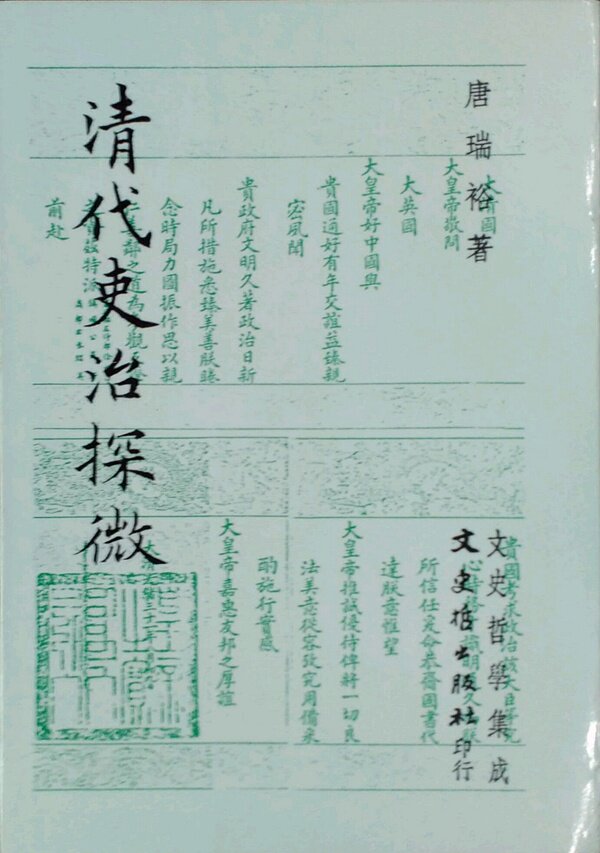 唐瑞裕著
清代吏治探微
文史哲學集成
文史哲出版社印行
大清國
大皇帝敬問
大英國
大皇帝好中國與
貴國通好有年交誼益臻親
密夙聞
貴政府文明久著政治日新
凡所措施悉臻美善朕睠
念時局力圖振作思以親
前赴
貴國考求政治
所信任爰命恭齎國書代
達朕意惟望
大皇帝推誠優待俾將一切良
法美意從容考究用備采
酌施行實感
大皇帝嘉惠友邦之厚誼